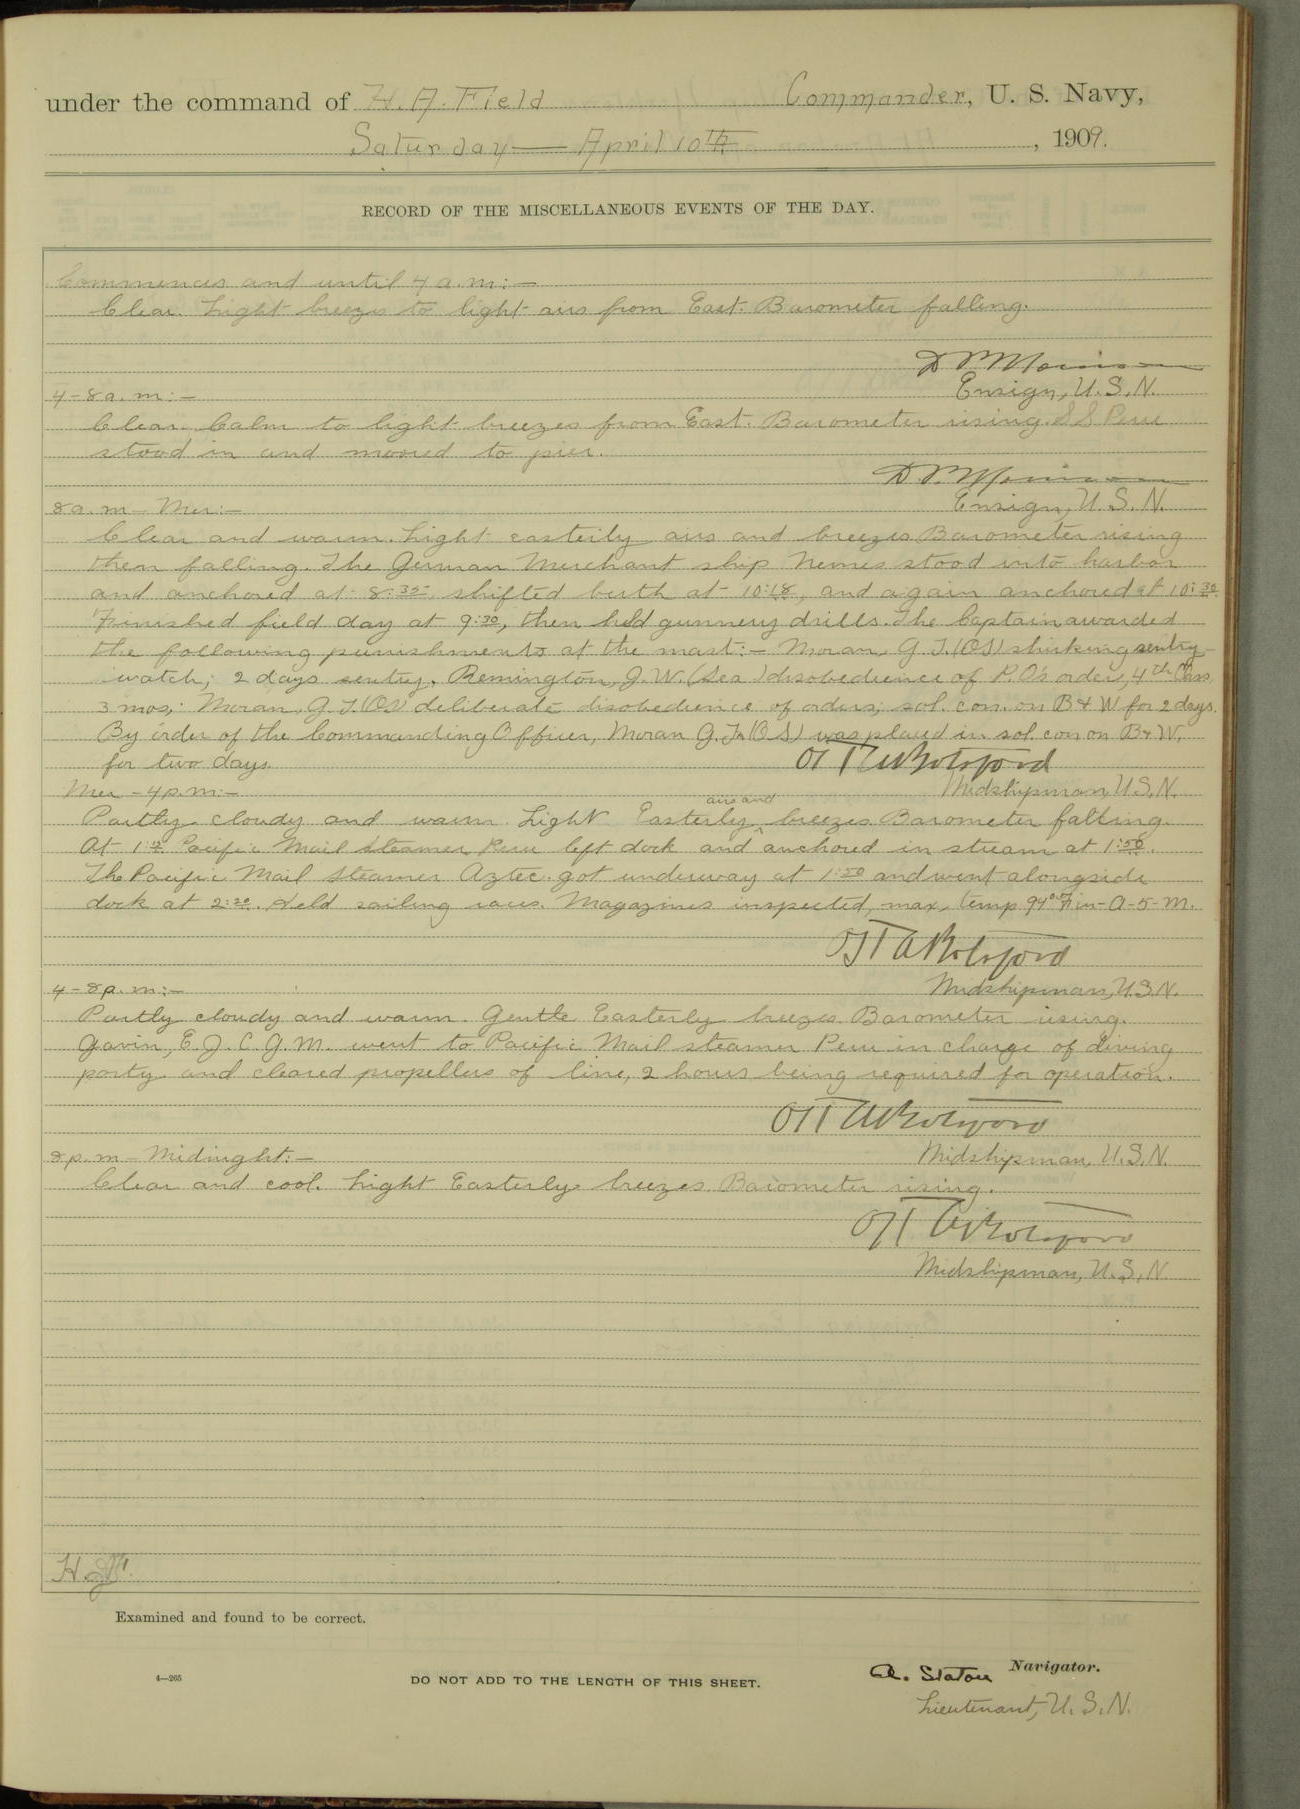 under the command of H. A. Field Commander, U. S. Navy,
Saturday — April 10th, 1909.
RECORD OF THE MISCELLANEOUS EVENTS OF THE DAY.
Commences and until 4 a.m:-
Clear. Light breezes to light airs from East. Barometer falling.
Ensign, U.S.N.
4-8 a.m:-
Clear. Calm to light breezes from East. Barometer rising. S S Peru
stood in and moored to pier.
Ensign, U.S.N.
8 a.m - Mer:-
Clear and warm. Light easterly airs and breezes. Barometer rising
then falling. The German Merchant ship Nemes stood into harbor
and anchored at 8:35, shifted berth at 10:18, and again anchored at 10:30.
Finished field day at 9:30, then held gunnery drills. The Captain awarded
the following punishments at the mast:- Moran, G. J. (OS) shirking sentry
watch; 2 days sentry. Remington, J. W. (Sea) disobedience of P.O's order, 4th Class
3 mos; Moran, G. J. (OS) deliberate disobedience of orders; sol. con. on B & W for 2 days.
By order of the Commanding Officer, Moran G. J. (OS) was placed in sol. con on B & W,
for two days.
Midshipman, U.S.N.
Mer - 4 p.m:-
airs and
Partly cloudy and warm. Light Easterly ^ breezes. Barometer falling.
At 1: Pacific Mail steamer Peru left dock and anchored in stream at 1:50.
The Pacific Mail Steamer Aztec got underway at 1:50 and went alongside
dock at 2:20. Held sailing races. Magazines inspected, max. temp 94° F in - A-5-M.
Midshipman, U.S.N.
4-8 p.m:-
Partly cloudy and warm. Gentle Easterly breezes. Barometer rising.
Gavin, E. J. C.G.M. went to Pacific Mail steamer Peru in charge of diving
party and cleared propellers of line, 2 hours being required for operation.
Midshipman, U.S.N.
8 p.m - Midnight:-
Clear and cool. Light Easterly breezes. Barometer rising.
Midshipman, U.S.N
Examined and found to be correct.
4—265
DO NOT ADD TO THE LENGTH OF THIS SHEET.
A. Staton Navigator.
Lieutenant, U.S.N.